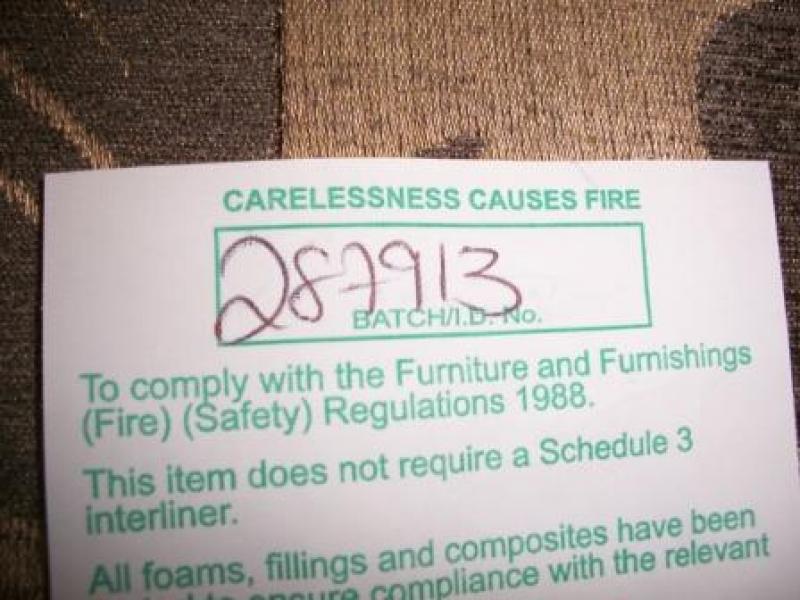 CARELESSNESS CAUSES FIRE
287913
BATCH/I.D. No.
To comply with the Furniture and Furnishings
(Fire) (Safety) Regulations 1988.
This item does not require a Schedule 3
interliner.
All foams, fillings and composites have been
to ensure compliance with the relevant